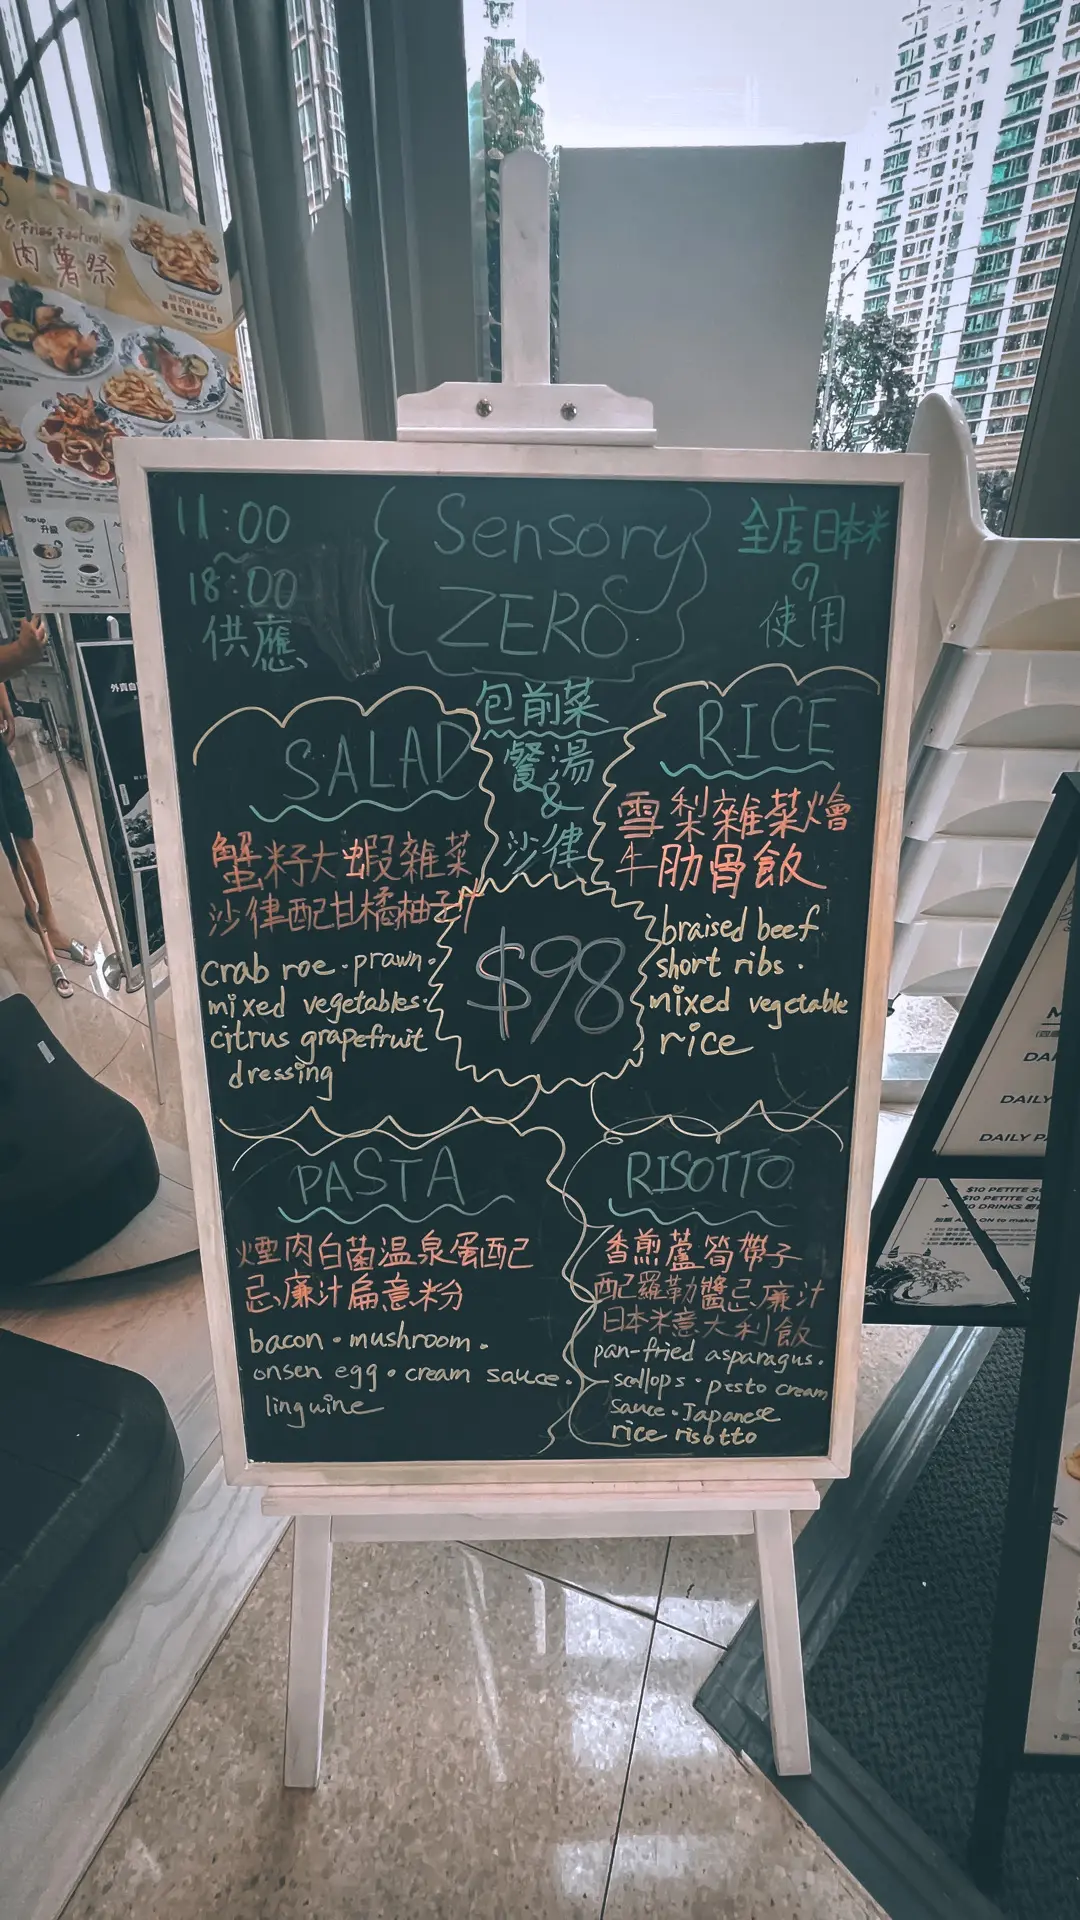 11:00
~
18:00
供應
Sensory
ZERO
全店日本米
の
使用
包前菜
餐湯
&
沙律
SALAD
蟹籽大蝦雜菜
沙律配甘橘柚子汁
crab roe · prawn ·
mixed vegetables ·
citrus grapefruit
dressing
RICE
雪梨雜菜燴
牛肋骨飯
braised beef
short ribs ·
mixed vegetable
rice
$98
PASTA
煙肉白菌溫泉蛋配
忌廉汁扁意粉
bacon · mushroom ·
onsen egg · cream sauce ·
linguine
RISOTTO
香煎蘆筍帶子
配羅勒醬忌廉汁
日本米意大利飯
pan-fried asparagus ·
scallops · pesto cream
sauce · Japanese
rice risotto
& Fries Festival
肉薯祭
ALL YOU CAN EAT
Top up
升級
外賣自
DAILY
DAILY P
$10 PETITE
$10 PETITE
DRINKS